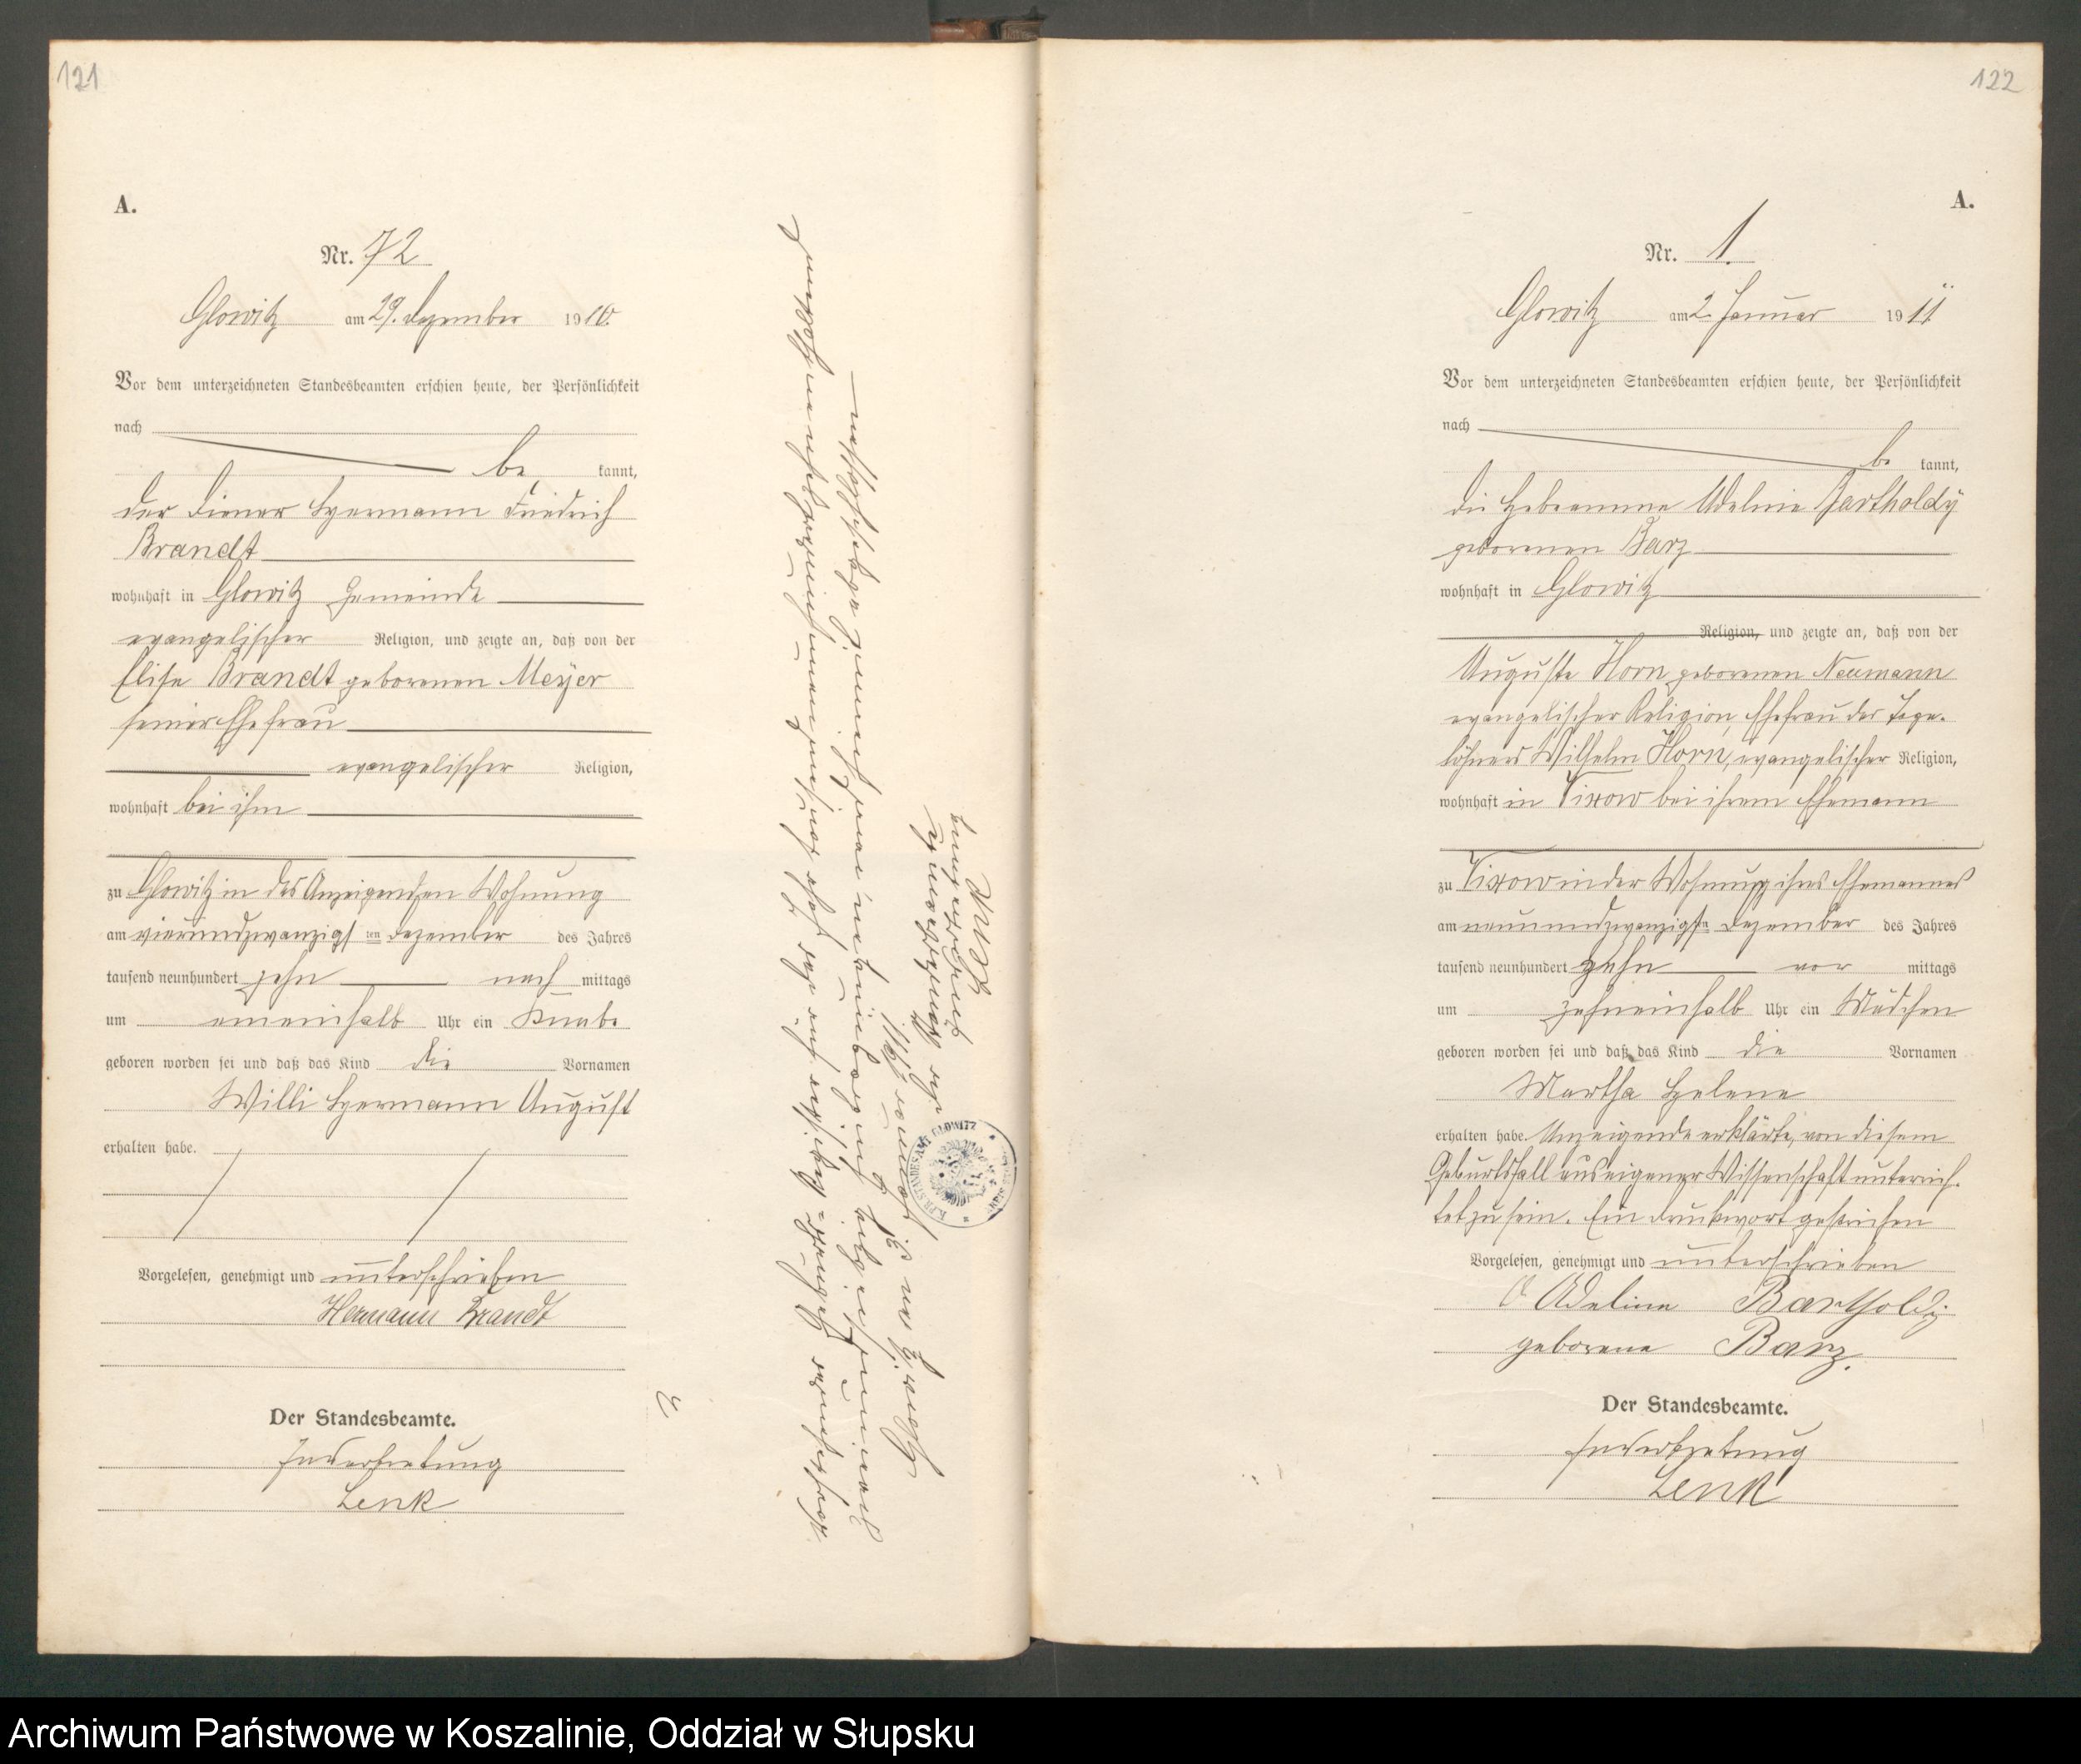 121
A.
Nr. 72
Glowitz am 29. Dezember 1910.
Vor dem unterzeichneten Standesbeamten erschien heute, der Persönlichkeit
nach
be kannt,
der Diener Hermann Friedrich
Brandt
wohnhaft in Glowitz Gemeinde
evangelischer Religion, und zeigte an, daß von der
Elise Brandt geborenen Meyer
seiner Ehefrau
evangelischer Religion,
wohnhaft bei ihm
zu Glowitz in des Anzeigenden Wohnung
am vierundzwanzigsten Dezember des Jahres
tausend neunhundert zehn nach mittags
um eineinhalb Uhr ein Knabe
geboren worden sei und daß das Kind die Vornamen
Willi Hermann August
erhalten habe.
Vorgelesen, genehmigt und unterschrieben
Hermann Brandt
Der Standesbeamte.
In Vertretung
Lenk
Haupt-Register
abgeschlossen
Glowitz den Januar 1911
Der Standesbeamte
In Vertretung
Lenk
K. PR. STANDESAMT GLOWITZ
122
A.
Nr. 1.
Glowitz am 2. Januar 1911
Vor dem unterzeichneten Standesbeamten erschien heute, der Persönlichkeit
nach
be kannt,
die Hebeamme Adeline Bartholdy
geborenen Barz
wohnhaft in Glowitz
Religion, und zeigte an, daß von der
Auguste Horn geborenen Neumann
evangelischer Religion, Ehefrau des Tage-
löhners Wilhelm Horn, evangelischer Religion,
wohnhaft in Vixow bei ihrem Ehemann
zu Vixow in der Wohnung ihres Ehemannes
am neunundzwanzigsten Dezember des Jahres
tausend neunhundert zehn vor mittags
um zehneinhalb Uhr ein Mädchen
geboren worden sei und daß das Kind die Vornamen
Martha Helene
erhalten habe. Anzeigende erklärte, von diesem
Geburtsfall aus eigener Wissenschaft unterrich-
tet zu sein. Ein Druckwort gestrichen
Vorgelesen, genehmigt und unterschrieben
Adeline Bartholdy
geborene Barz.
Der Standesbeamte.
In Vertretung
Lenk
Archiwum Państwowe w Koszalinie, Oddział w Słupsku